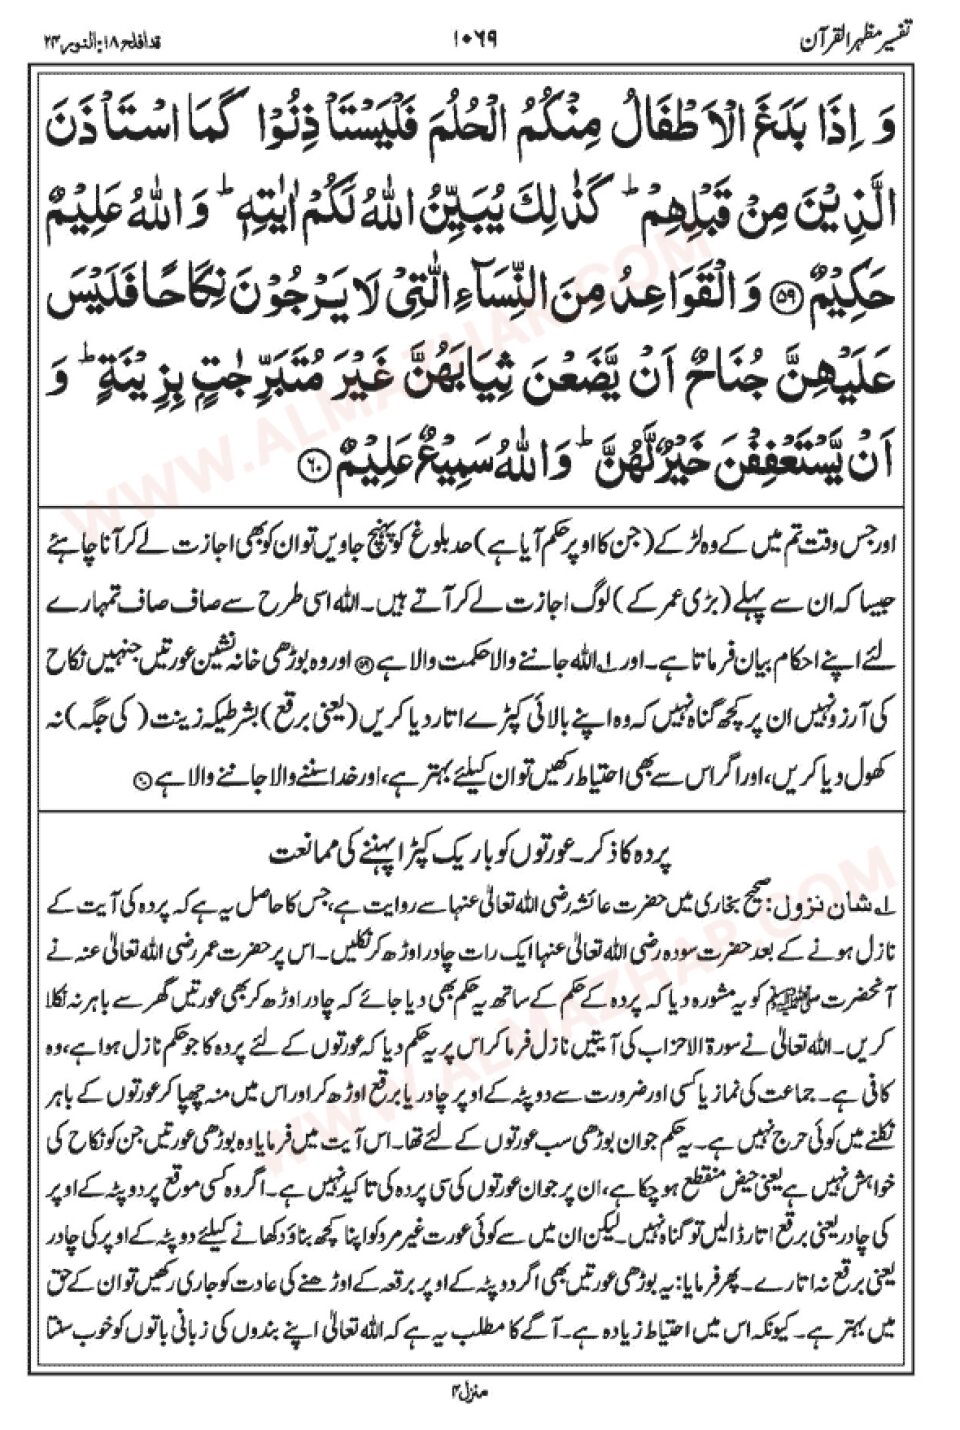 تفسیر مظہر القرآن ۱۰۶۹ قد افلح ۱۸: النور ۲۴
وَ اِذَا بَلَغَ الْاَطْفَالُ مِنْكُمُ الْحُلُمَ فَلْیَسْتَاْذِنُوْا كَمَا اسْتَاْذَنَ
الَّذِیْنَ مِنْ قَبْلِهِمْ ؕ كَذٰلِكَ یُبَیِّنُ اللّٰهُ لَكُمْ اٰیٰتِهٖ ؕ وَ اللّٰهُ عَلِیْمٌ
حَكِیْمٌ ﴿۵۹﴾ وَ الْقَوَاعِدُ مِنَ النِّسَآءِ الّٰتِیْ لَا یَرْجُوْنَ نِكَاحًا فَلَیْسَ
عَلَیْهِنَّ جُنَاحٌ اَنْ یَّضَعْنَ ثِیَابَهُنَّ غَیْرَ مُتَبَرِّجٰتٍۭ بِزِیْنَةٍ ؕ وَ
اَنْ یَّسْتَعْفِفْنَ خَیْرٌ لَّهُنَّ ؕ وَ اللّٰهُ سَمِیْعٌ عَلِیْمٌ ﴿۶۰﴾
اور جس وقت تم میں کے وہ لڑکے (جن کا اوپر حکم آیا ہے) حد بلوغ کو پہنچ جاویں تو ان کو بھی اجازت لے کر آنا چاہئے
جیسا کہ ان سے پہلے (بڑی عمر کے) لوگ اجازت لے کر آتے ہیں۔ اللہ اسی طرح سے صاف صاف تمہارے
لئے اپنے احکام بیان فرماتا ہے۔ اور ۱؎ اللہ جاننے والا حکمت والا ہے ﴿۵۹﴾ اور وہ بوڑھی خانہ نشین عورتیں جنہیں نکاح
کی آرزو نہیں ان پر کچھ گناہ نہیں کہ وہ اپنے بالائی کپڑے اتار دیا کریں (یعنی برقع) بشرطیکہ زینت (کی جگہ) نہ
کھول دیا کریں، اور اگر اس سے بھی احتیاط رکھیں تو ان کیلئے بہتر ہے، اور خدا سننے والا جاننے والا ہے ﴿۶۰﴾
پردہ کا ذکر۔ عورتوں کو باریک کپڑا پہننے کی ممانعت
۱؎ شان نزول: صحیح بخاری میں حضرت عائشہ رضی اللہ تعالیٰ عنہا سے روایت ہے، جس کا حاصل یہ ہے کہ پردہ کی آیت کے
نازل ہونے کے بعد حضرت سودہ رضی اللہ تعالیٰ عنہا ایک رات چادر اوڑھ کر نکلیں۔ اس پر حضرت عمر رضی اللہ تعالیٰ عنہ نے
آنحضرت ﷺ کو یہ مشورہ دیا کہ پردہ کے حکم کے ساتھ یہ حکم بھی دیا جائے کہ چادر اوڑھ کر بھی عورتیں گھر سے باہر نہ نکلا
کریں۔ اللہ تعالیٰ نے سورۃ الاحزاب کی آیتیں نازل فرما کر اس پر یہ حکم دیا کہ عورتوں کے لئے پردہ کا جو حکم نازل ہوا ہے، وہ
کافی ہے۔ جماعت کی نماز یا کسی اور ضرورت سے دوپٹہ کے اوپر چادر یا برقع اوڑھ کر اور اس میں منہ چھپا کر عورتوں کے باہر
نکلنے میں کوئی حرج نہیں ہے۔ یہ حکم جوان بوڑھی سب عورتوں کے لئے تھا۔ اس آیت میں فرمایا وہ بوڑھی عورتیں جن کو نکاح کی
خواہش نہیں ہے یعنی حیض منقطع ہو چکا ہے، ان پر جوان عورتوں کی سی پردہ کی تاکید نہیں ہے۔ اگر وہ کسی موقع پر دوپٹہ کے اوپر
کی چادر یعنی برقع اتار ڈالیں تو گناہ نہیں۔ لیکن ان میں سے کوئی عورت غیر مرد کو اپنا کچھ بناؤ دکھانے کیلئے دوپٹہ کے اوپر کی چادر
یعنی برقع نہ اتارے۔ پھر فرمایا: یہ بوڑھی عورتیں بھی اگر دوپٹہ کے اوپر برقعہ کے اوڑھنے کی عادت کو جاری رکھیں تو ان کے حق
میں بہتر ہے۔ کیونکہ اس میں احتیاط زیادہ ہے۔ آگے کا مطلب یہ ہے کہ اللہ تعالیٰ اپنے بندوں کی زبانی باتوں کو خوب سنتا
منزل ۴
WWW.ALMAZHAR.COM
WWW.ALMAZHAR.COM